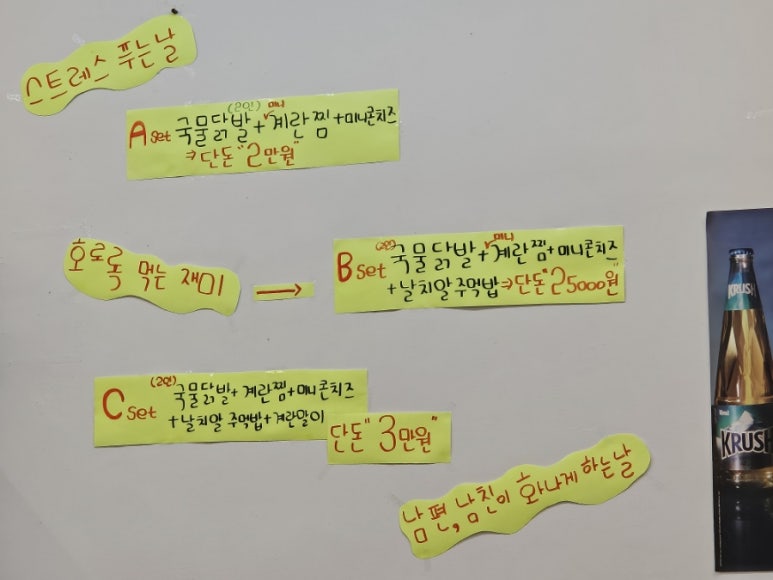 스트레스 푸는날
(2인) 미니
A set 국물닭발 + 계란찜 + 미니콘치즈
⇒ 단돈 "2만원"
호로록 먹는 재미 →
(2인) 미니
B set 국물닭발 + 계란찜 + 미니콘치즈
+ 날치알 주먹밥 ⇒ 단돈 "25000원"
(2인)
C set 국물닭발 + 계란찜 + 미니콘치즈
+ 날치알 주먹밥 + 계란말이
단돈 "3만원"
남편, 남친이 화나게 하는날
KRUSH
KRUSH